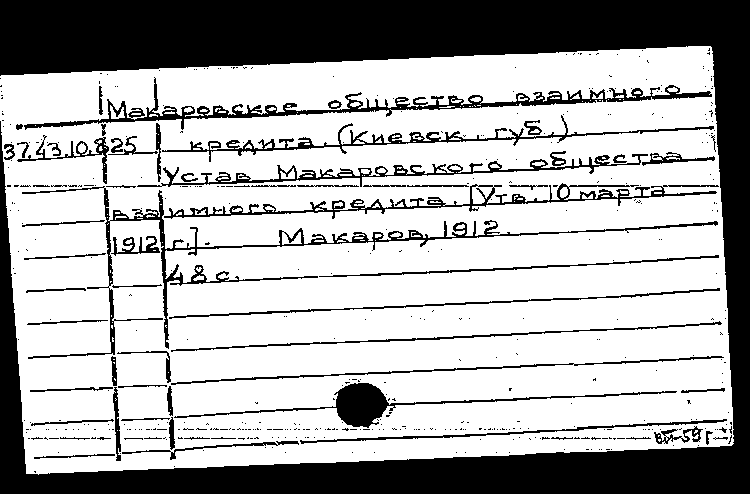 Макаровское общество взаимного
37.43.10.825 кредита. (Киевск. губ.).
Устав Макаровского общества
взаимного кредита. [Утв. 10 марта
1912 г.]. Макаров, 1912.
48 с.
59 г